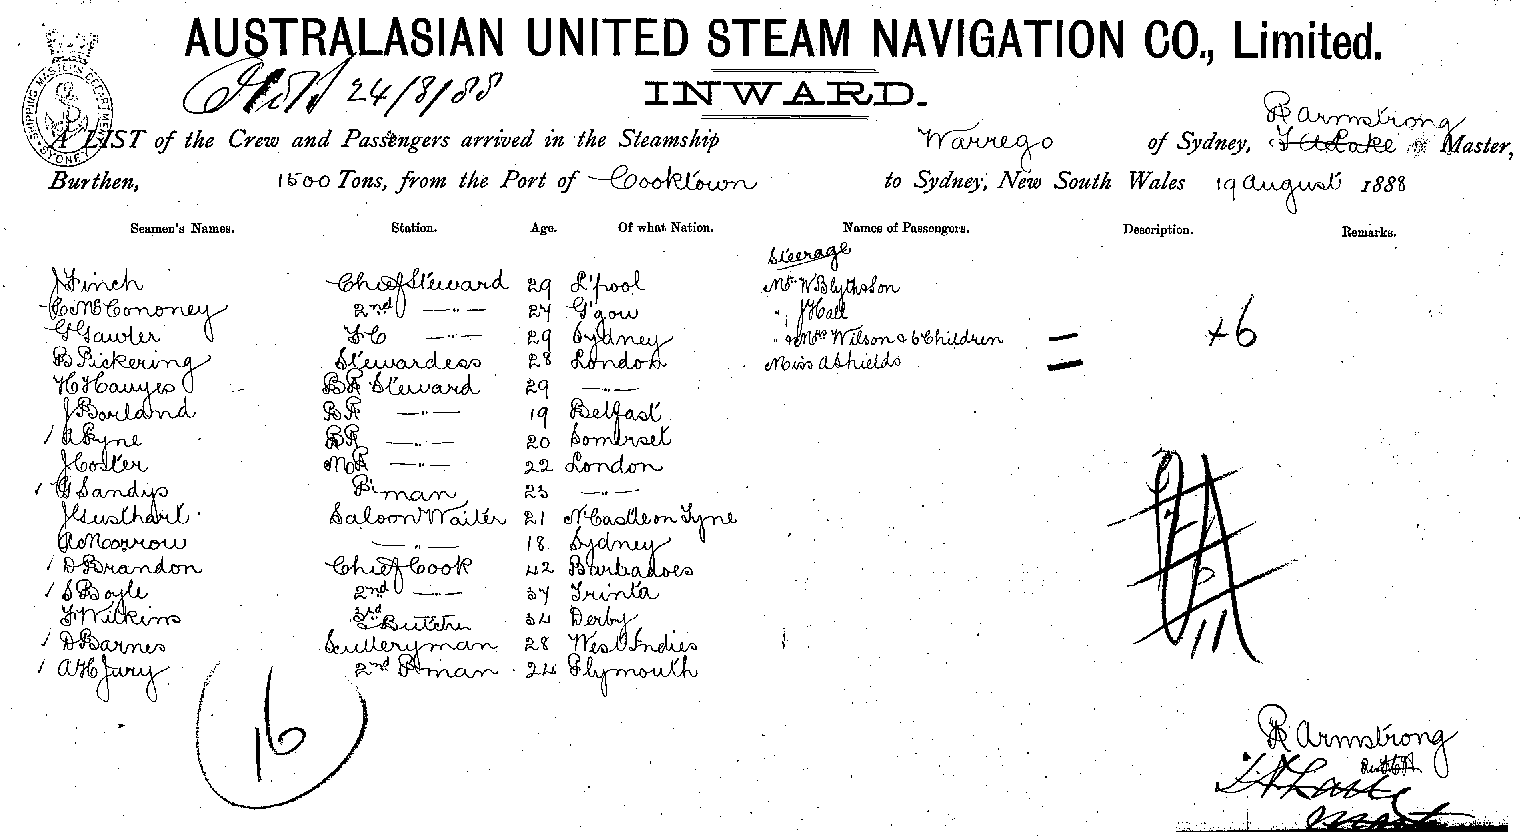 AUSTRALASIAN UNITED STEAM NAVIGATION CO., Limited.
24/8/88
INWARD.
SHIPPING MASTER'S DEPARTMENT SYDNEY
R Armstrong
A LIST of the Crew and Passengers arrived in the Steamship Warrego of Sydney, Master,
Burthen, 1500 Tons, from the Port of Cooktown to Sydney, New South Wales 19 August 1888
Seamen's Names. Station. Age. Of what Nation. Names of Passengers. Description. Remarks.
Steerage
J Finch Chief Steward 29 L'pool Mr W Blythson
C McCononey 2nd —"— 27 G'gow " J Hall
G Sawter FC —"— 29 Sydney " & Mrs Wilson & 6 Children — +6
B Pickering Stewardess 28 London Miss A Shields =
H Hawyes BR Steward 29 —"—
J Borland BR —"— 19 Belfast
1 A Pyne BR —"— 20 Somerset
J Coster MR —"— 22 London
1 G Sandys P'man 23 —"—
J Gusthart Saloon Waiter 21 N'Castle on Tyne
A Morrow —"— 18 Sydney
1 D Brandon Chief Cook 42 Barbadoes
1 S Boyle 2nd —"— 37 Trinta
F Wilkins 3rd & Butcher 34 Derby
1 D Barnes Sculleryman 28 West Indies
1 A H Jury 2nd P'man 24 Plymouth
16
11
R Armstrong